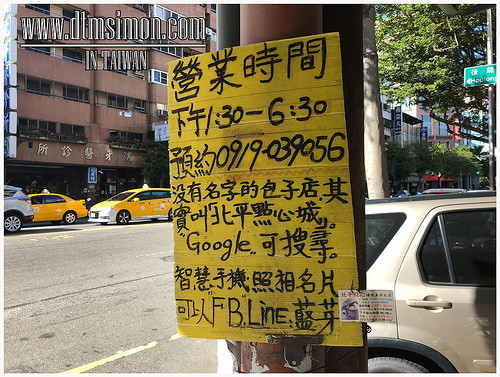 www.dtmsimon.com
IN TAIWAN
營業時間
下午1:30-6:30
預約0919-039056
沒有名字的包子店,其
實叫北平點心城。
Google 可搜尋。
智慧手機照相名片
可以FB.Line:藍芽
所診醫牙